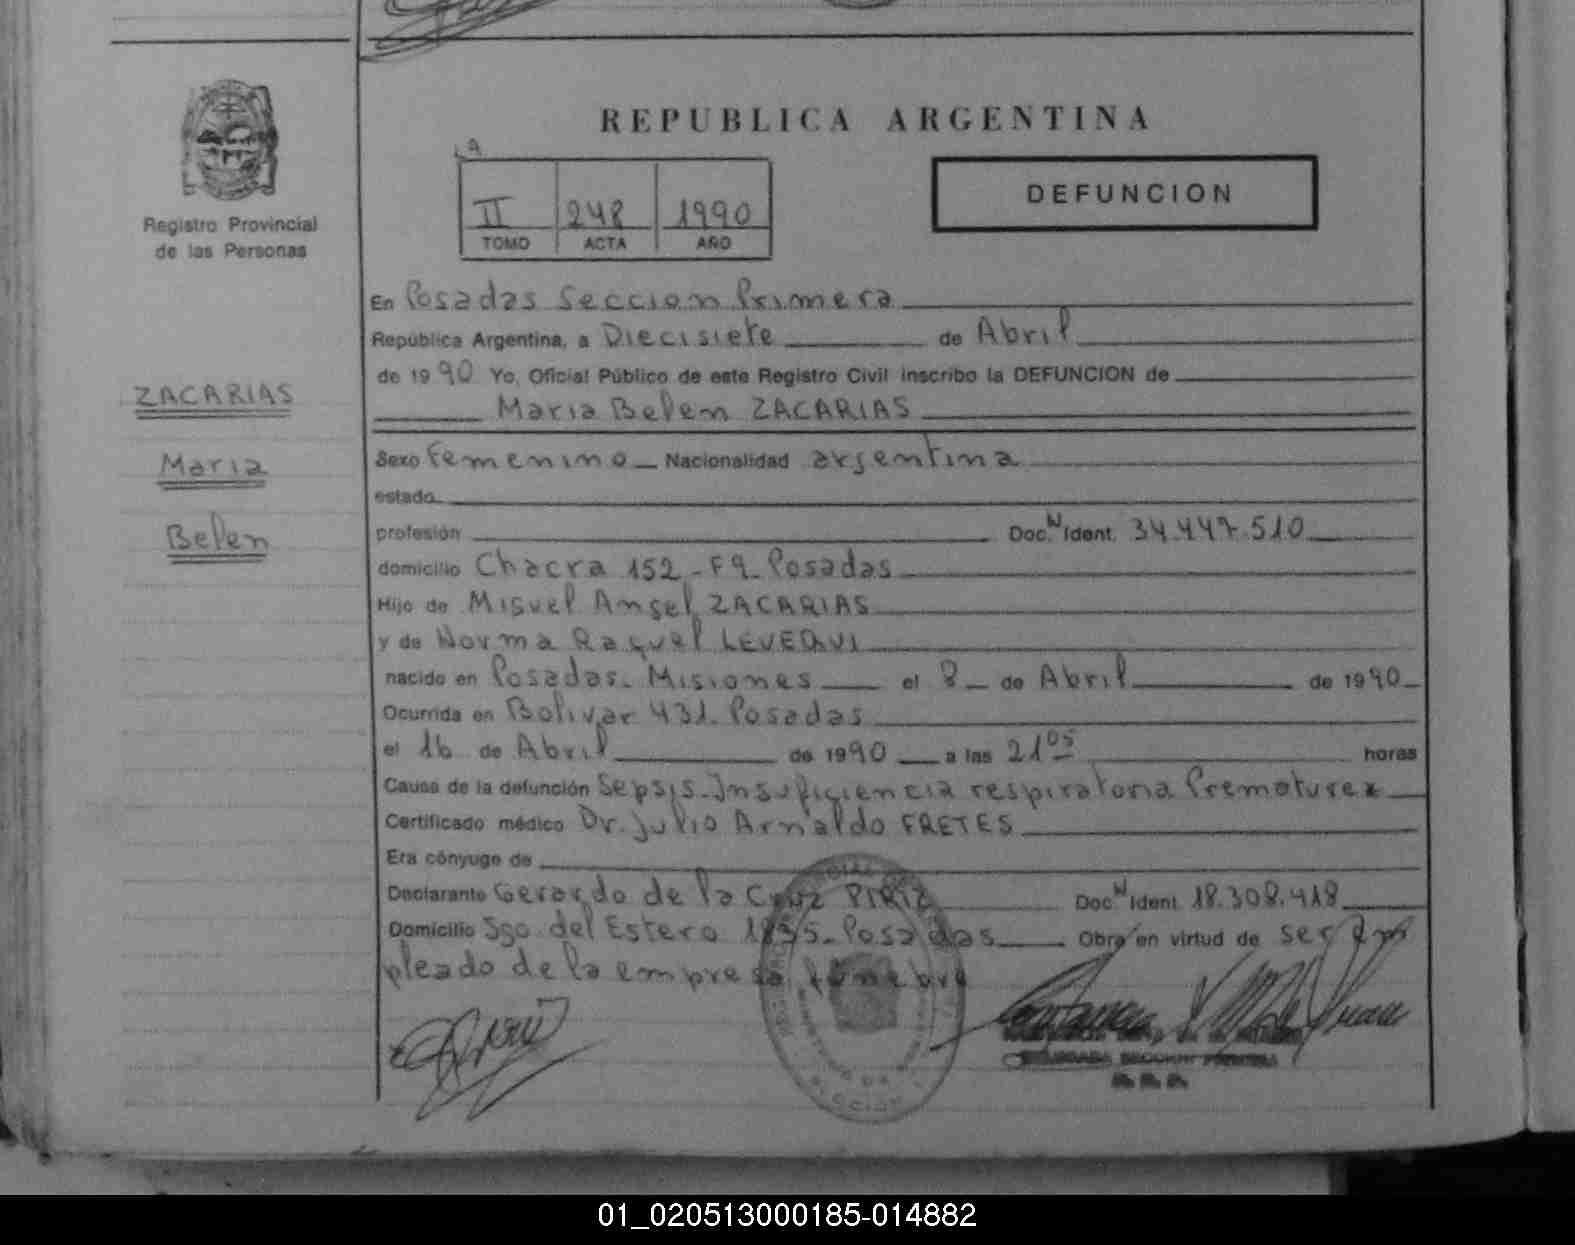 REPUBLICA ARGENTINA
DEFUNCION
II 248 1990
TOMO ACTA AÑO
Registro Provincial
de las Personas
ZACARIAS
Maria
Belen
En Posadas Seccion Primera
República Argentina, a Diecisiete de Abril
de 1990 Yo, Oficial Público de este Registro Civil inscribo la DEFUNCION de
Maria Belen ZACARIAS
Sexo Femenino Nacionalidad argentina
estado
profesión Doc. Ident. 34.447.510
domicilio Chacra 152 - F9 - Posadas
Hijo de Miguel Angel ZACARIAS
y de Norma Raquel LEVEQUI
nacido en Posadas - Misiones el 8 de Abril de 1990
Ocurrida en Bolivar 431. Posadas
el 16 de Abril de 1990 a las 21 05 horas
Causa de la defunción Sepsis - Insuficiencia respiratoria Prematurez
Certificado médico Dr. Julio Arnaldo FRETES
Era cónyuge de
Declarante Gerardo de la Cruz PIRIZ Doc. Ident. 18.308.418
Domicilio Sgo. del Estero Posadas Obra en virtud de ser Em
pleado de la empresa funebre
01_020513000185-014882